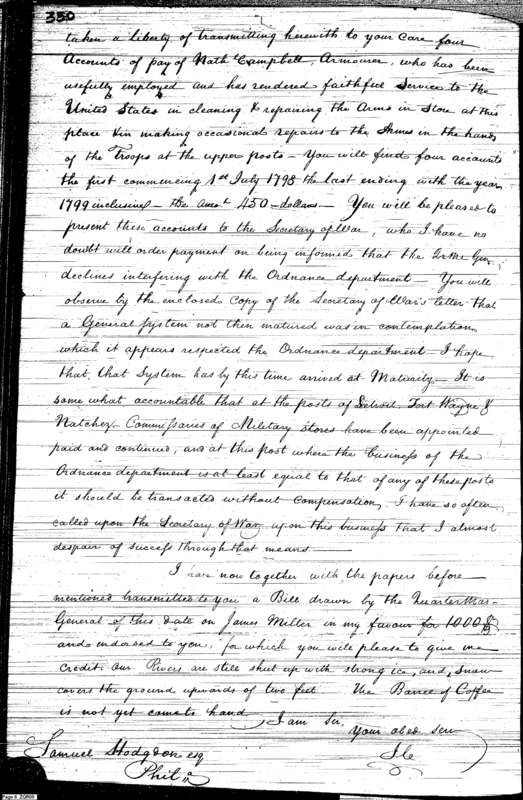 350
taken a liberty of transmitting herewith to your care four
Accounts of pay of Nath Campbell, Armourer, who has been
usefully employed and has rendered faithful Service to the
United States in cleaning & repairing the Arms in Store at this
place & in making occasional repairs to the Arms in the hands
of the Troops at the upper posts – You will find four accounts
the first commencing 1st July 1798 the last ending with the year
1799 inclusive – the amot 450 – dollars – You will be pleased to
present these accounts to the Secretary of War, who I have no
doubt will order payment on being informed that the Qr Mr Gen
declines interfering with the Ordnance department – You will
observe by the enclosed Copy of the Secretary of War's letter that
a General System not then matured was in contemplation
which it appears respected the Ordnance department – I hope
that, that System has by this time arrived at Maturity – It is
some what accountable that at the posts of Detroit, Fort Wayne &
Natchez – Commissaries of Military Stores have been appointed
paid and continued, and at this post where the business of the
Ordnance department is at least equal to that of any of these posts
it should be transacted without compensation, I have so often
called upon the Secretary of War, upon this business that I almost
despair of success through that means. –
I have now together with the papers before
mentioned transmitted to you a Bill drawn by the Quarter Mas-
General of this date on James Miller in my favour for 1000
and endorsed to you, for which you will please to give me
Credit. Our Rivers are still shut up with strong ice, and, snow
covers the ground upwards of two feet The Barrel of Coffee
is not yet come to hand, I am Sir,
your obed ser
Samuel Hodgdon esq
Phila
Page 5